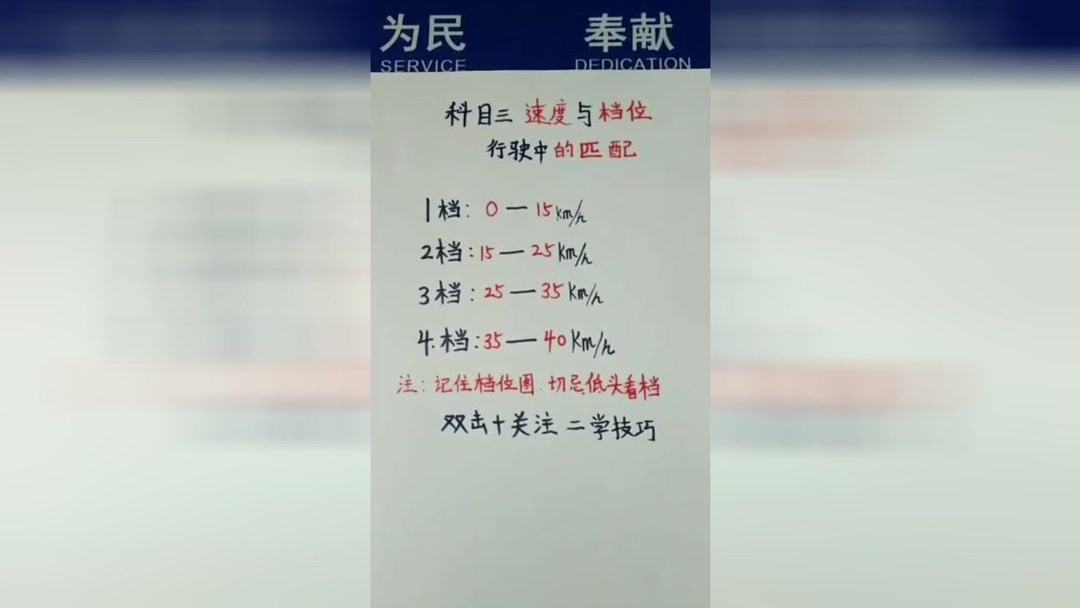 为民 奉献
SERVICE DEDICATION
科目三 速度与档位
行驶中的匹配
1档: 0—15km/h
2档:15—25km/h
3档:25—35km/h
4.档:35—40Km/h
注:记住档位图.切忌低头看档
双击+关注 二学技巧